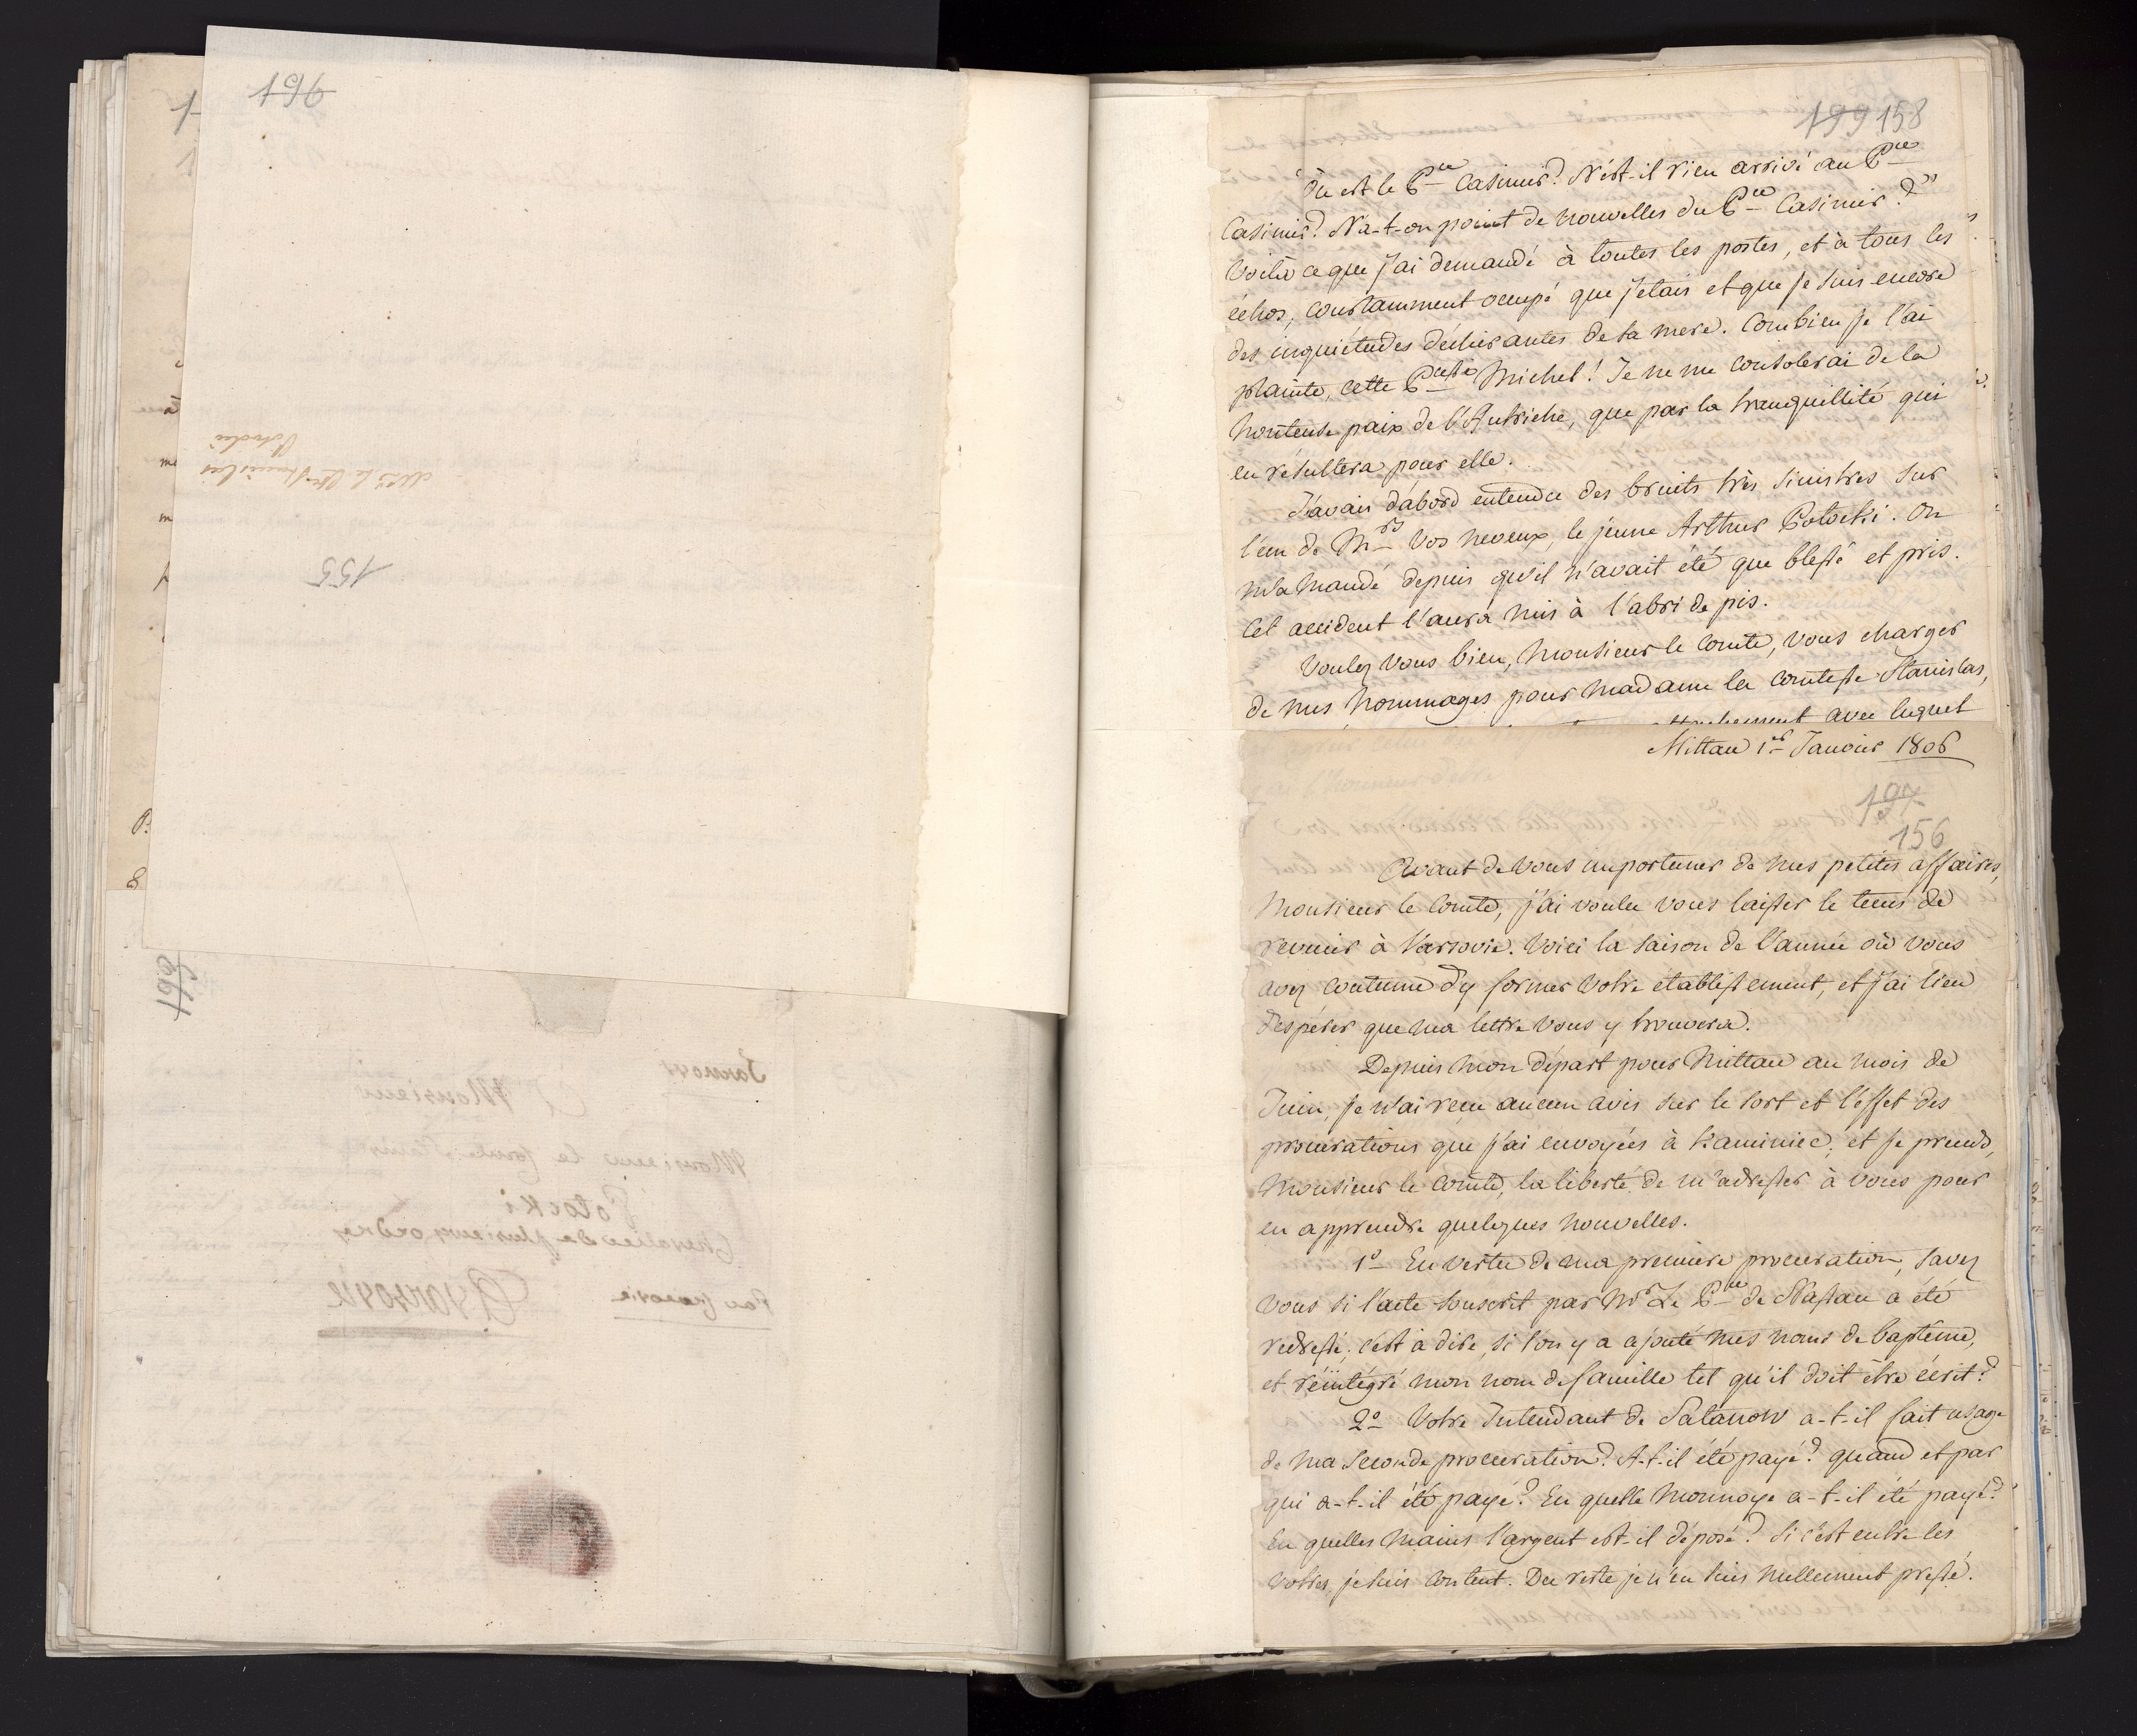 196
155
198
199 158
Où est le Pce Casimir? N'est-il rien arrivé au Pce
Casimir? N'a-t-on point de nouvelles du Pce Casimir?"
Voilà ce que j'ai demandé à toutes les postes, et à tous les
échos, constamment occupé que j'étais et que je suis encore
des inquiétudes déchirantes de sa mere. Combien je l'ai
plainte, cette Pcesse Michel! Je ne me consolerai de la
honteuse paix de l'Autriche, que par la tranquillité qui
en résultera pour elle.
J'avais d'abord entendu des bruits très sinistres sur
l'un de Mrs vos neveux, le jeune Arthur Potocki. On
m'a mandé depuis qu'il n'avait été que blessé et pris.
Cet accident l'aura mis à l'abri de pis.
Voulez vous bien, Monsieur le Comte, vous charger
de mes hommages pour Madame la Comtesse Stanislas,
avec lequel
Mittau 1er Janvier 1806
197
156
Avant de vous importuner de mes petites affaires,
Monsieur le Comte, j'ai voulu vous laisser le tems de
revenir à Varsovie. Voici la saison de l'année où vous
avez coutume d'y former votre établissement, et j'ai lieu
d'espérer que ma lettre vous y trouvera.
Depuis mon départ pour Mittau au mois de
Juin, je n'ai reçu aucun avis sur le sort et l'effet des
procurations que j'ai envoyées à Kaminiec; et je prends,
Monsieur le Comte, la liberté de m'adresser à vous pour
en apprendre quelques nouvelles.
1o En vertu de ma premiere procuration, savez
vous si l'acte souscrit par Mr Le Pce de Nassau a été
redressé; c'est à dire, si l'on y a ajouté mes noms de baptême,
et réintégré mon nom de famille tel qu'il doit être écrit?
2o Votre Intendant de Satanow a-t-il fait usage
de ma seconde procuration? A-t-il été payé? quand et par
qui a-t-il été payé? En quelle Monnoye a-t-il été payé?
En quelles mains l'argent est-il déposé? Si c'est entre les
votres, je suis content. Du reste je n'en suis nullement pressé.
Monsieur
Monsieur le Comte
Potocki
Chevalier de plusieurs ordres
Varsovie